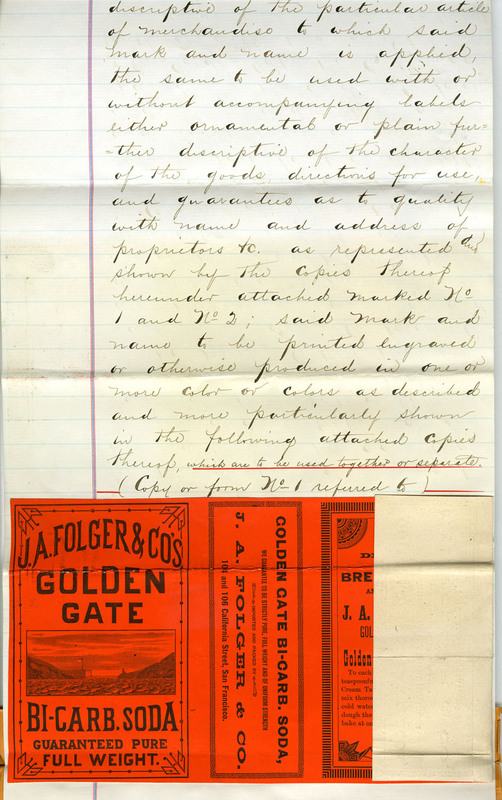 descriptive of the particular article
of merchandise to which said
mark and name is applied,
the same to be used with or
without accompanying labels
either ornamental or plain fur-
-ther descriptive of the character
of the goods, directions for use,
and guarantees as to quality
with name and address of
proprietors &c. as represented and
shown by the copies thereof
hereunder attached marked No
1 and No 2; said mark and
name to be printed engraved
or otherwise produced in one or
more color or colors as described
and more particularly shown
in the following attached copies
thereof, which are to be used together or separate.
(Copy or form No 1 referred to)
J.A. FOLGER & CO'S
GOLDEN
GATE
BI-CARB. SODA
GUARANTEED PURE
FULL WEIGHT.
GOLDEN GATE BI-CARB. SODA,
WE GUARANTEE TO BE STRICTLY PURE, FULL WEIGHT AND OF UNIFORM STRENGTH
IMPORTED AND PACKED BY
J. A. FOLGER & CO.
104 and 106 California Street, San Francisco.
BRE
J. A.
GOL
Golden
To each
teaspoonfu
Cream Ta
mix thoro
cold water
dough the
bake at on